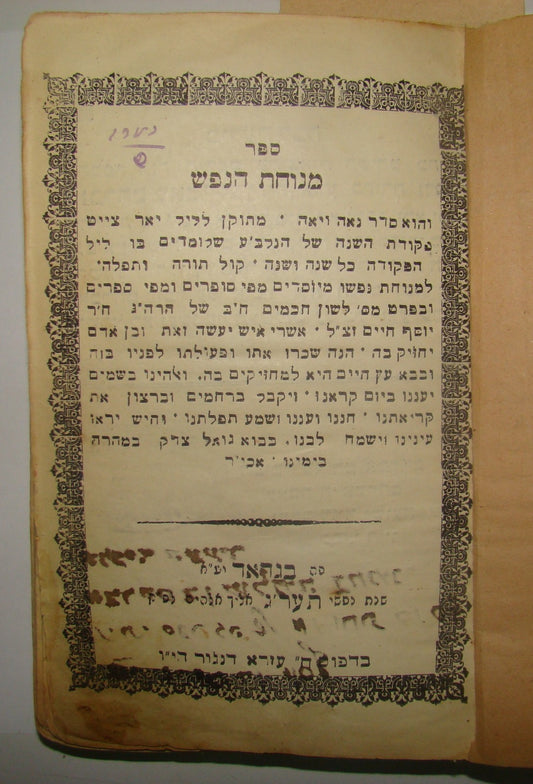 ספר
מנוחת הנפש
והוא סדר נאה ויאה · מתוקן לליל יאר צייט
פקודת השנה של הנלב״ע שלומדים בו ליל
הפקודה בכל שנה ושנה · קול תורה ותפלה ·
למנוחת נפשו מיוסדים מפי סופרים ומפי ספרים
ובפרט מס׳ לשון חכמים ח״ב של הרה״ג ח״ר
יוסף חיים זצ״ל · אשרי איש יעשה זאת ובן אדם
יחזיק בה · הנה שכרו אתו ופעולתו לפניו בזה
ובבא עץ חיים היא למחזיקים בה. ואלהינו בשמים
יעננו ביום קראנו · ויקבל ברחמים וברצון את
קריאתנו · חננו ועננו ושמע תפלתנו · וחיש יראו
עינינו וישמח לבנו. בבוא גואל צדק במהרה
בימינו · אכי״ר
פה בגדאד יע״א
שנת נפשי תער״ג אליך
עזרא דנגור הי״ו